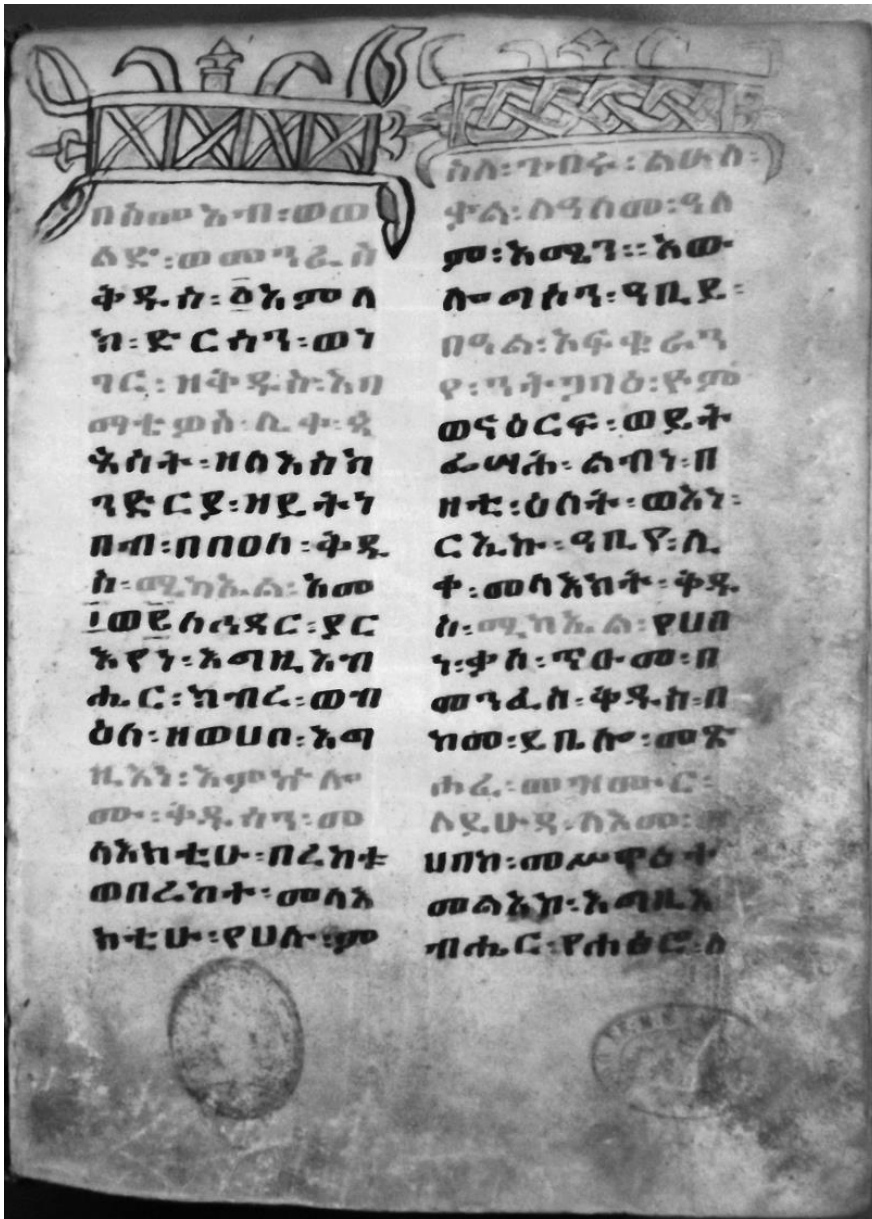 በስመ፡አብ፡ወወ
ልድ፡ወመንፈስ
ቅዱስ፡፩አምላ
ክ፡ድርሳን፡ወነ
ገር፡ዘቅዱስ፡አባ
ማቴዎስ፡ሊቀ፡ጳ
ጳሳት፡ዘለእስክ
ንድርያ፡ዘይትነ
በብ፡በበዐለ፡ቅዱ
ስ፡ሚካኤል፡አመ
፲ወ፪ለኅዳር፡ያር
እየነ፡እግዚአብ
ሔር፡ክብረ፡ወብ
ዕለ፡ዘወሀበ፡እግ
ዚእነ፡እምኵሎ
ሙ፡ቅዱሳን፡መ
ላእክቲሁ፡በረከቱ
ወበረከተ፡መላእ
ክቲሁ፡የሀሉ፡ም
ስለ፡ገብሩ፡ልሁለ፡
ቃል፡ለዓለመ፡ዓለ
ም፡አሜን።አው
ሎግሶን፡ዓቢይ፡
በዓል፡አፍቁራን
የ፡ንትጋባዕ፡ዮም
ወናዕርፍ፡ወይት
ፌሣሕ፡ልብነ፡በ
ዛቲ፡ዕለት፡ወእነ፡
ርኢኩ፡ዓቢየ፡ሊ
ቀ፡መላእክት፡ቅዱ
ስ፡ሚካኤል፡የሀበ
ነ፡ቃለ፡ጥዑመ፡በ
መንፈስ፡ቅዱስ፡በ
ከመ፡ይቤሎ፡መጽ
ሐፈ፡መዝሙር፡
ለይሁዳ፡ለእመ፡
ሀበከ፡መሥዋዕተ
መልአክ፡እግዚአ
ብሔር፡የሐፅሮ፡ለ